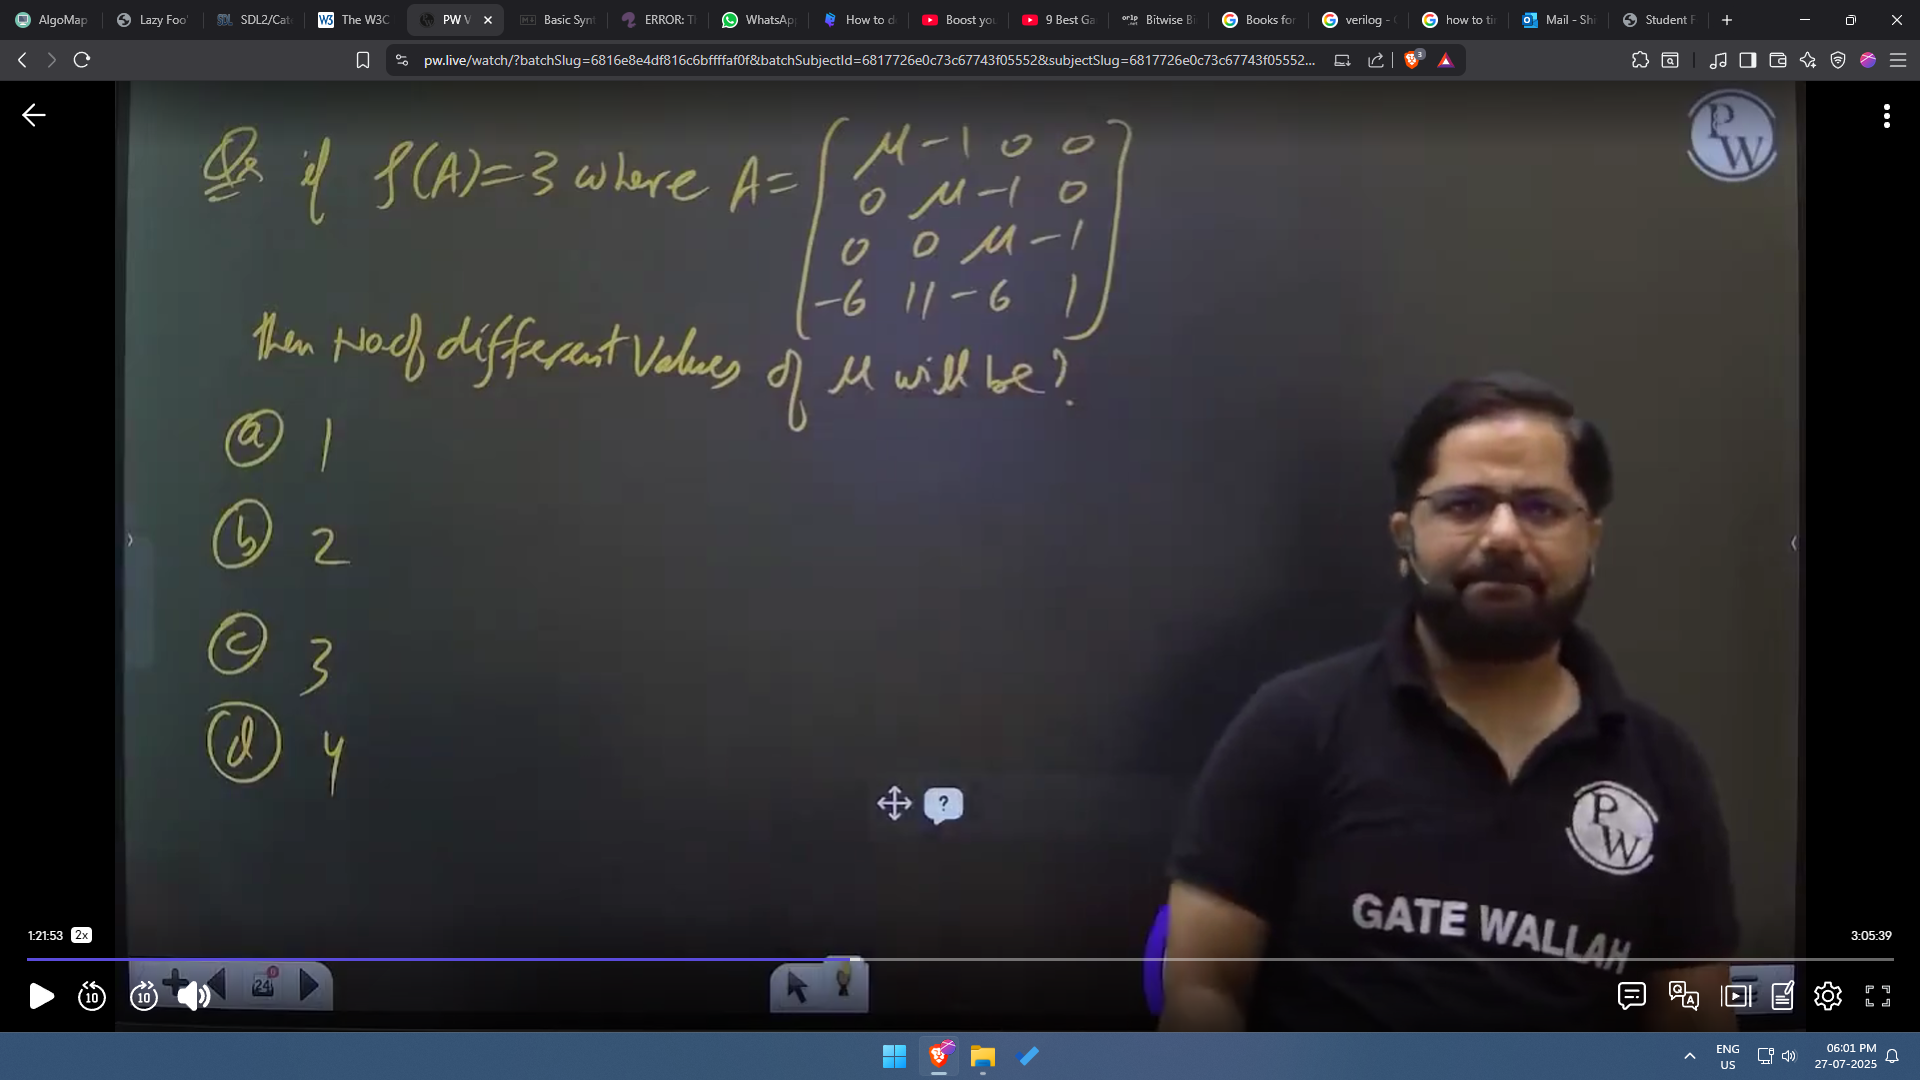 AlgoMap
Lazy Foo'
SDL2/Cate
The W3C
PW V
Basic Synt
ERROR: Th
WhatsApp
How to de
Boost you
9 Best Ga
Bitwise Bi
Books for
verilog - G
how to tir
Mail - Shi
Student F
pw.live/watch/?batchSlug=6816e8e4df816c6bffffaf0f&batchSubjectId=6817726e0c73c67743f05552&subjectSlug=6817726e0c73c67743f05552...
3
PW
Qs if ρ(A)=3 where A= [ μ -1 0 0
0 μ -1 0
0 0 μ -1
-6 11 -6 1 ]
then No of different Values of μ will be?
ⓐ 1
ⓑ 2
ⓒ 3
ⓓ 4
?
PW
GATE WALLAH
1:21:53 2x
3:05:39
10 10
24 0
Q A
ENG
US
06:01 PM
27-07-2025